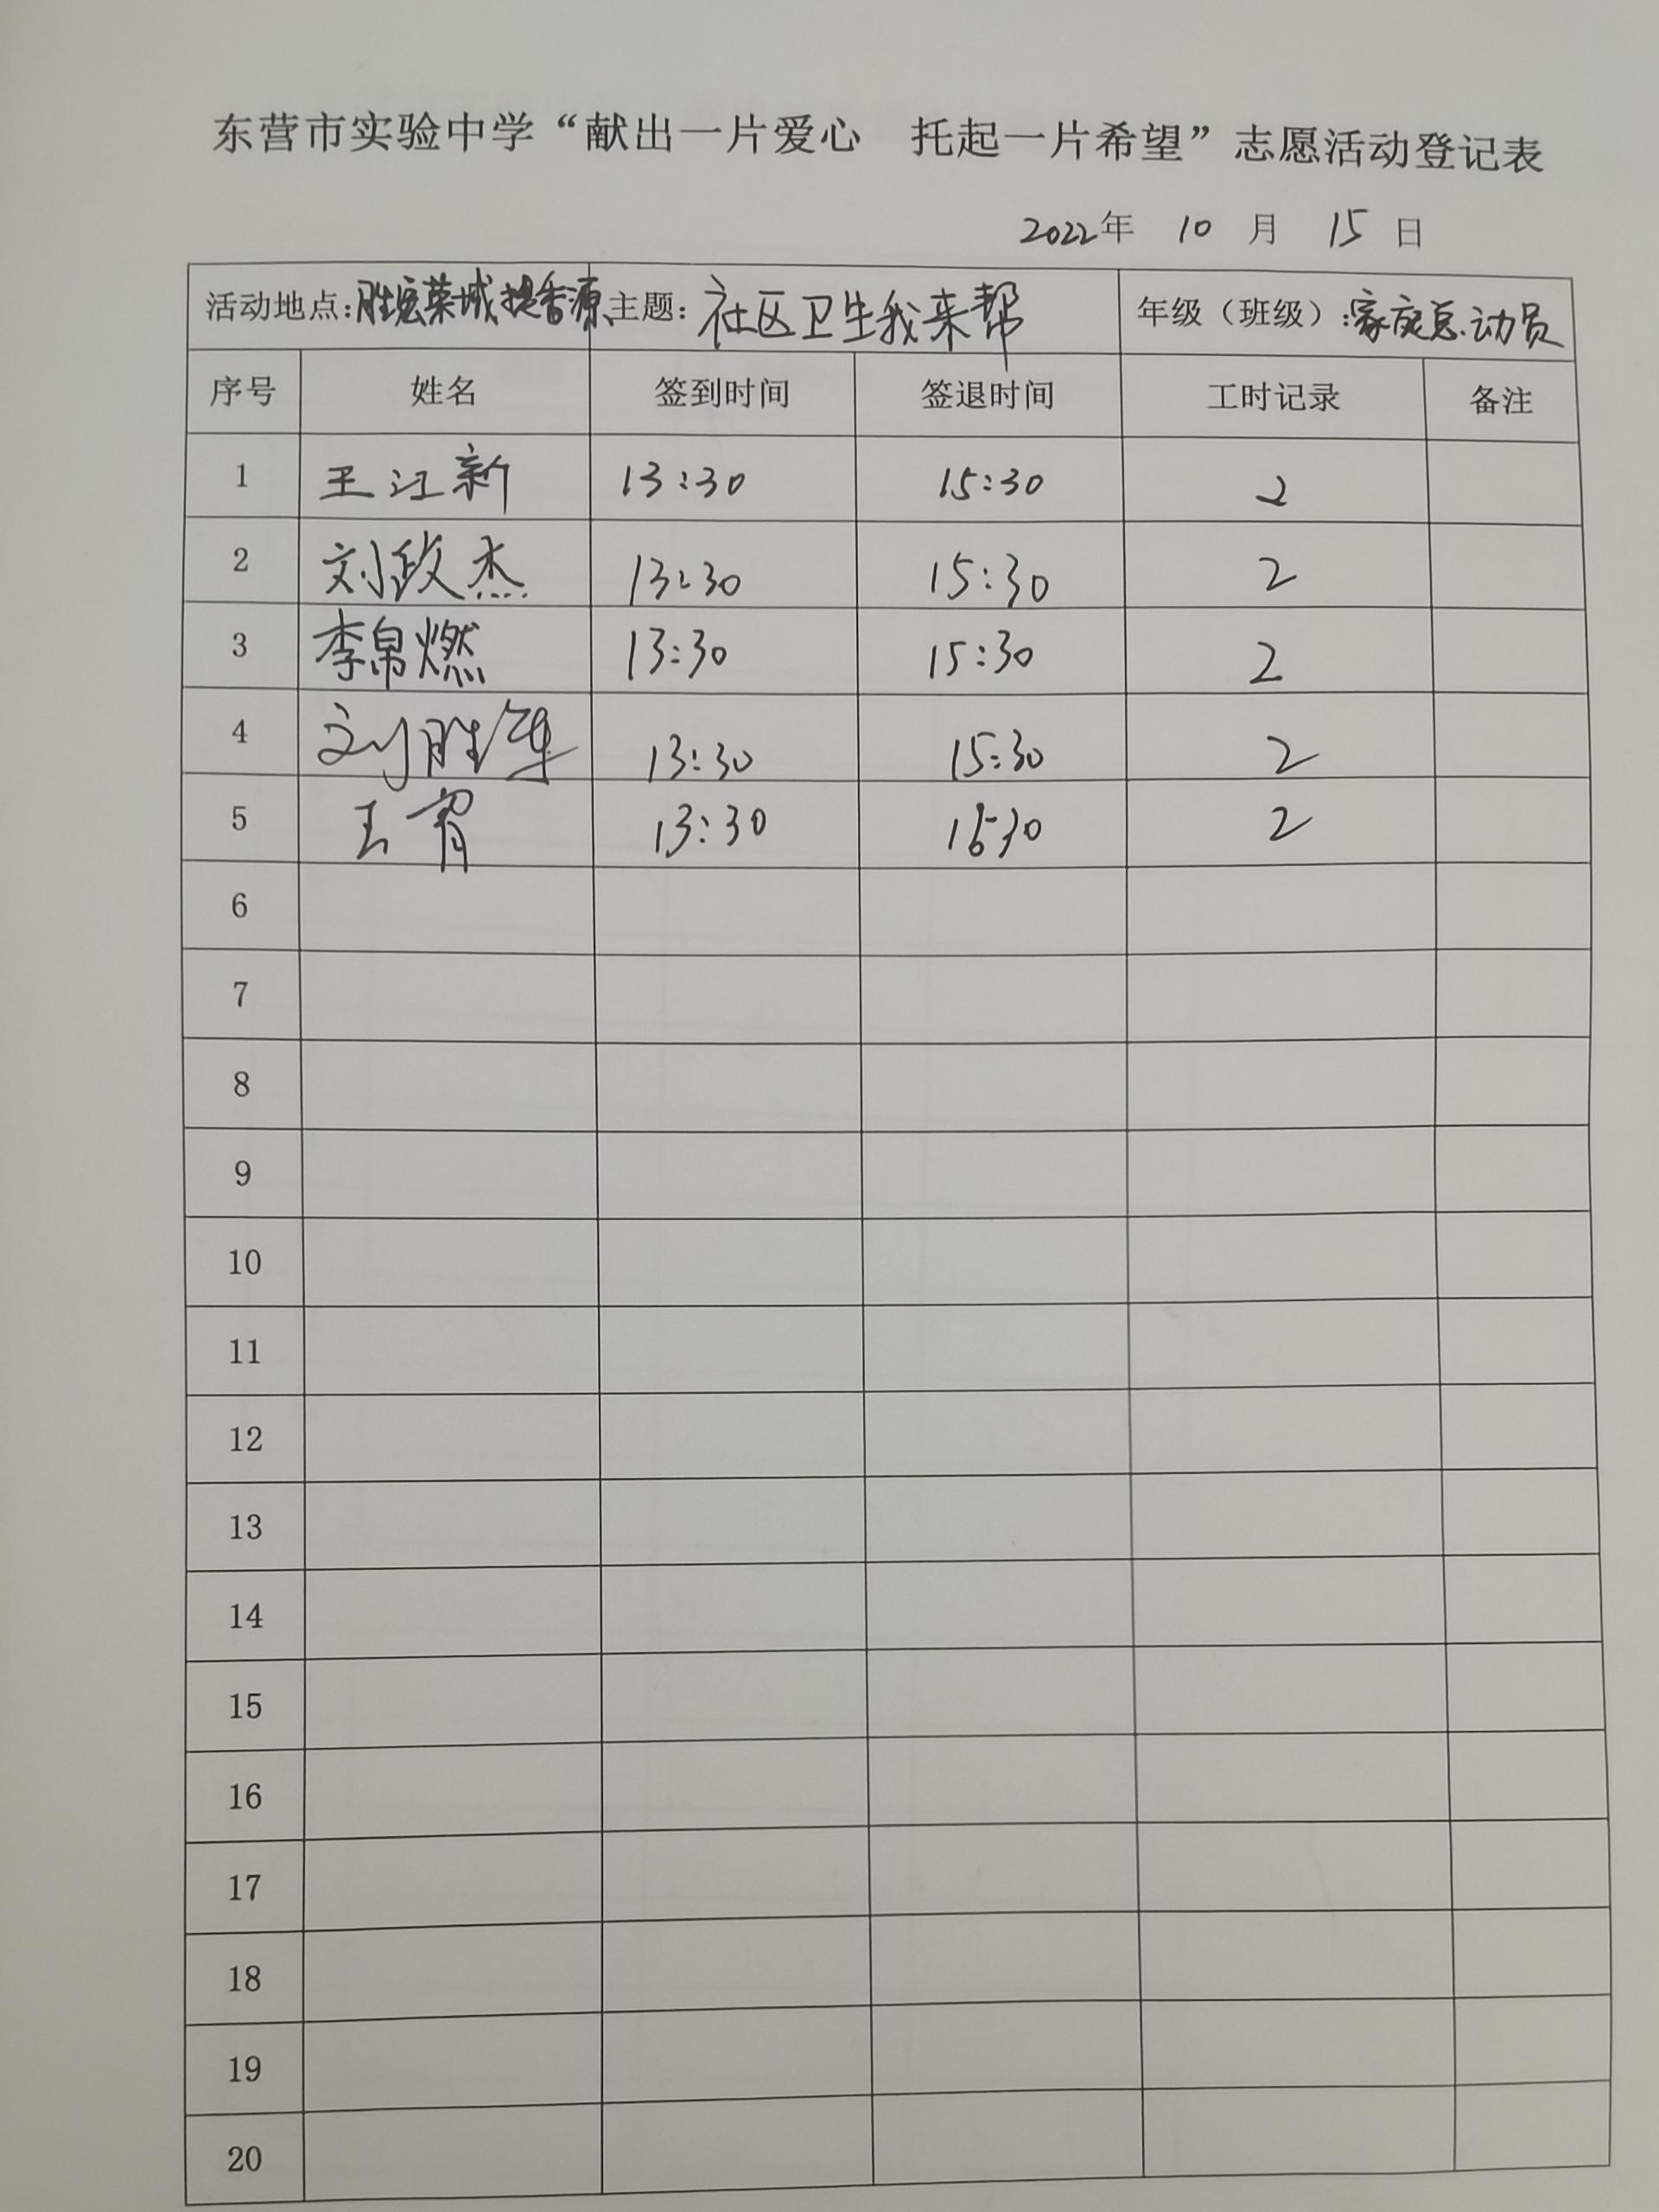 东营市实验中学“献出一片爱心 托起一片希望”志愿活动登记表
2022年 10 月 15 日
活动地点:胜宏荣域提香源 主题: 社区卫生我来帮 年级（班级）:家庭总动员
序号 姓名 签到时间 签退时间 工时记录 备注
1 王江新 13:30 15:30 2
2 刘政杰 13:30 15:30 2
3 李帛燃 13:30 15:30 2
4 刘胜军 13:30 15:30 2
5 王 13:30 15:30 2
6
7
8
9
10
11
12
13
14
15
16
17
18
19
20